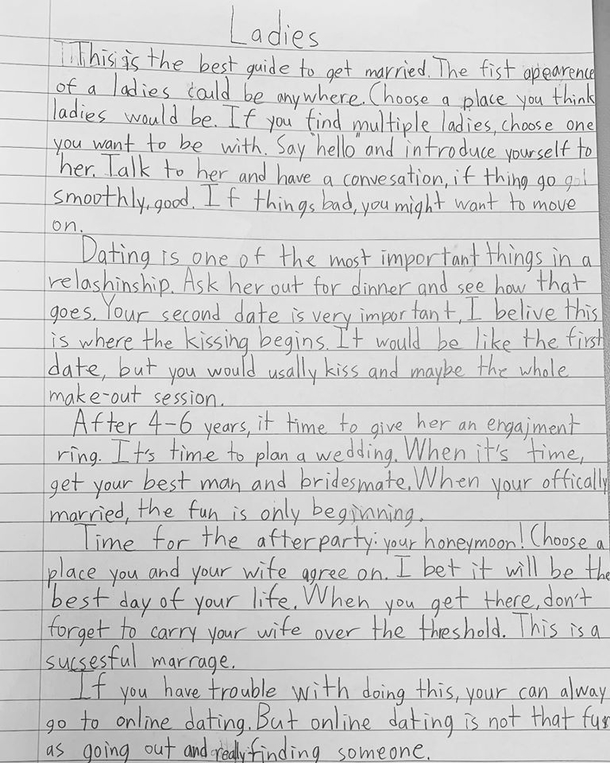 Ladies
This is the best guide to get married. The fist apearence
of a ladies could be anywhere. Choose a place you think
ladies would be. If you find multiple ladies, choose one
you want to be with. Say "hello" and introduce yourself to
her. Talk to her and have a convesation, if thing go
smoothly, good. If things bad, you might want to move
on.
Dating is one of the most important things in a
relashinship. Ask her out for dinner and see how that
goes. Your second date is very important, I belive this
is where the kissing begins. It would be like the first
date, but you would usally kiss and maybe the whole
make-out session.
After 4-6 years, it time to give her an engajment
ring. It's time to plan a wedding. When it's time,
get your best man and bridesmate. When your offically
married, the fun is only beginning.
Time for the afterparty: your honeymoon! Choose a
place you and your wife agree on. I bet it will be the
best day of your life. When you get there, don't
forget to carry your wife over the threshold. This is a
sucsesful marrage.
If you have trouble with doing this, your can alway
go to online dating. But online dating is not that fun
as going out and really finding someone.